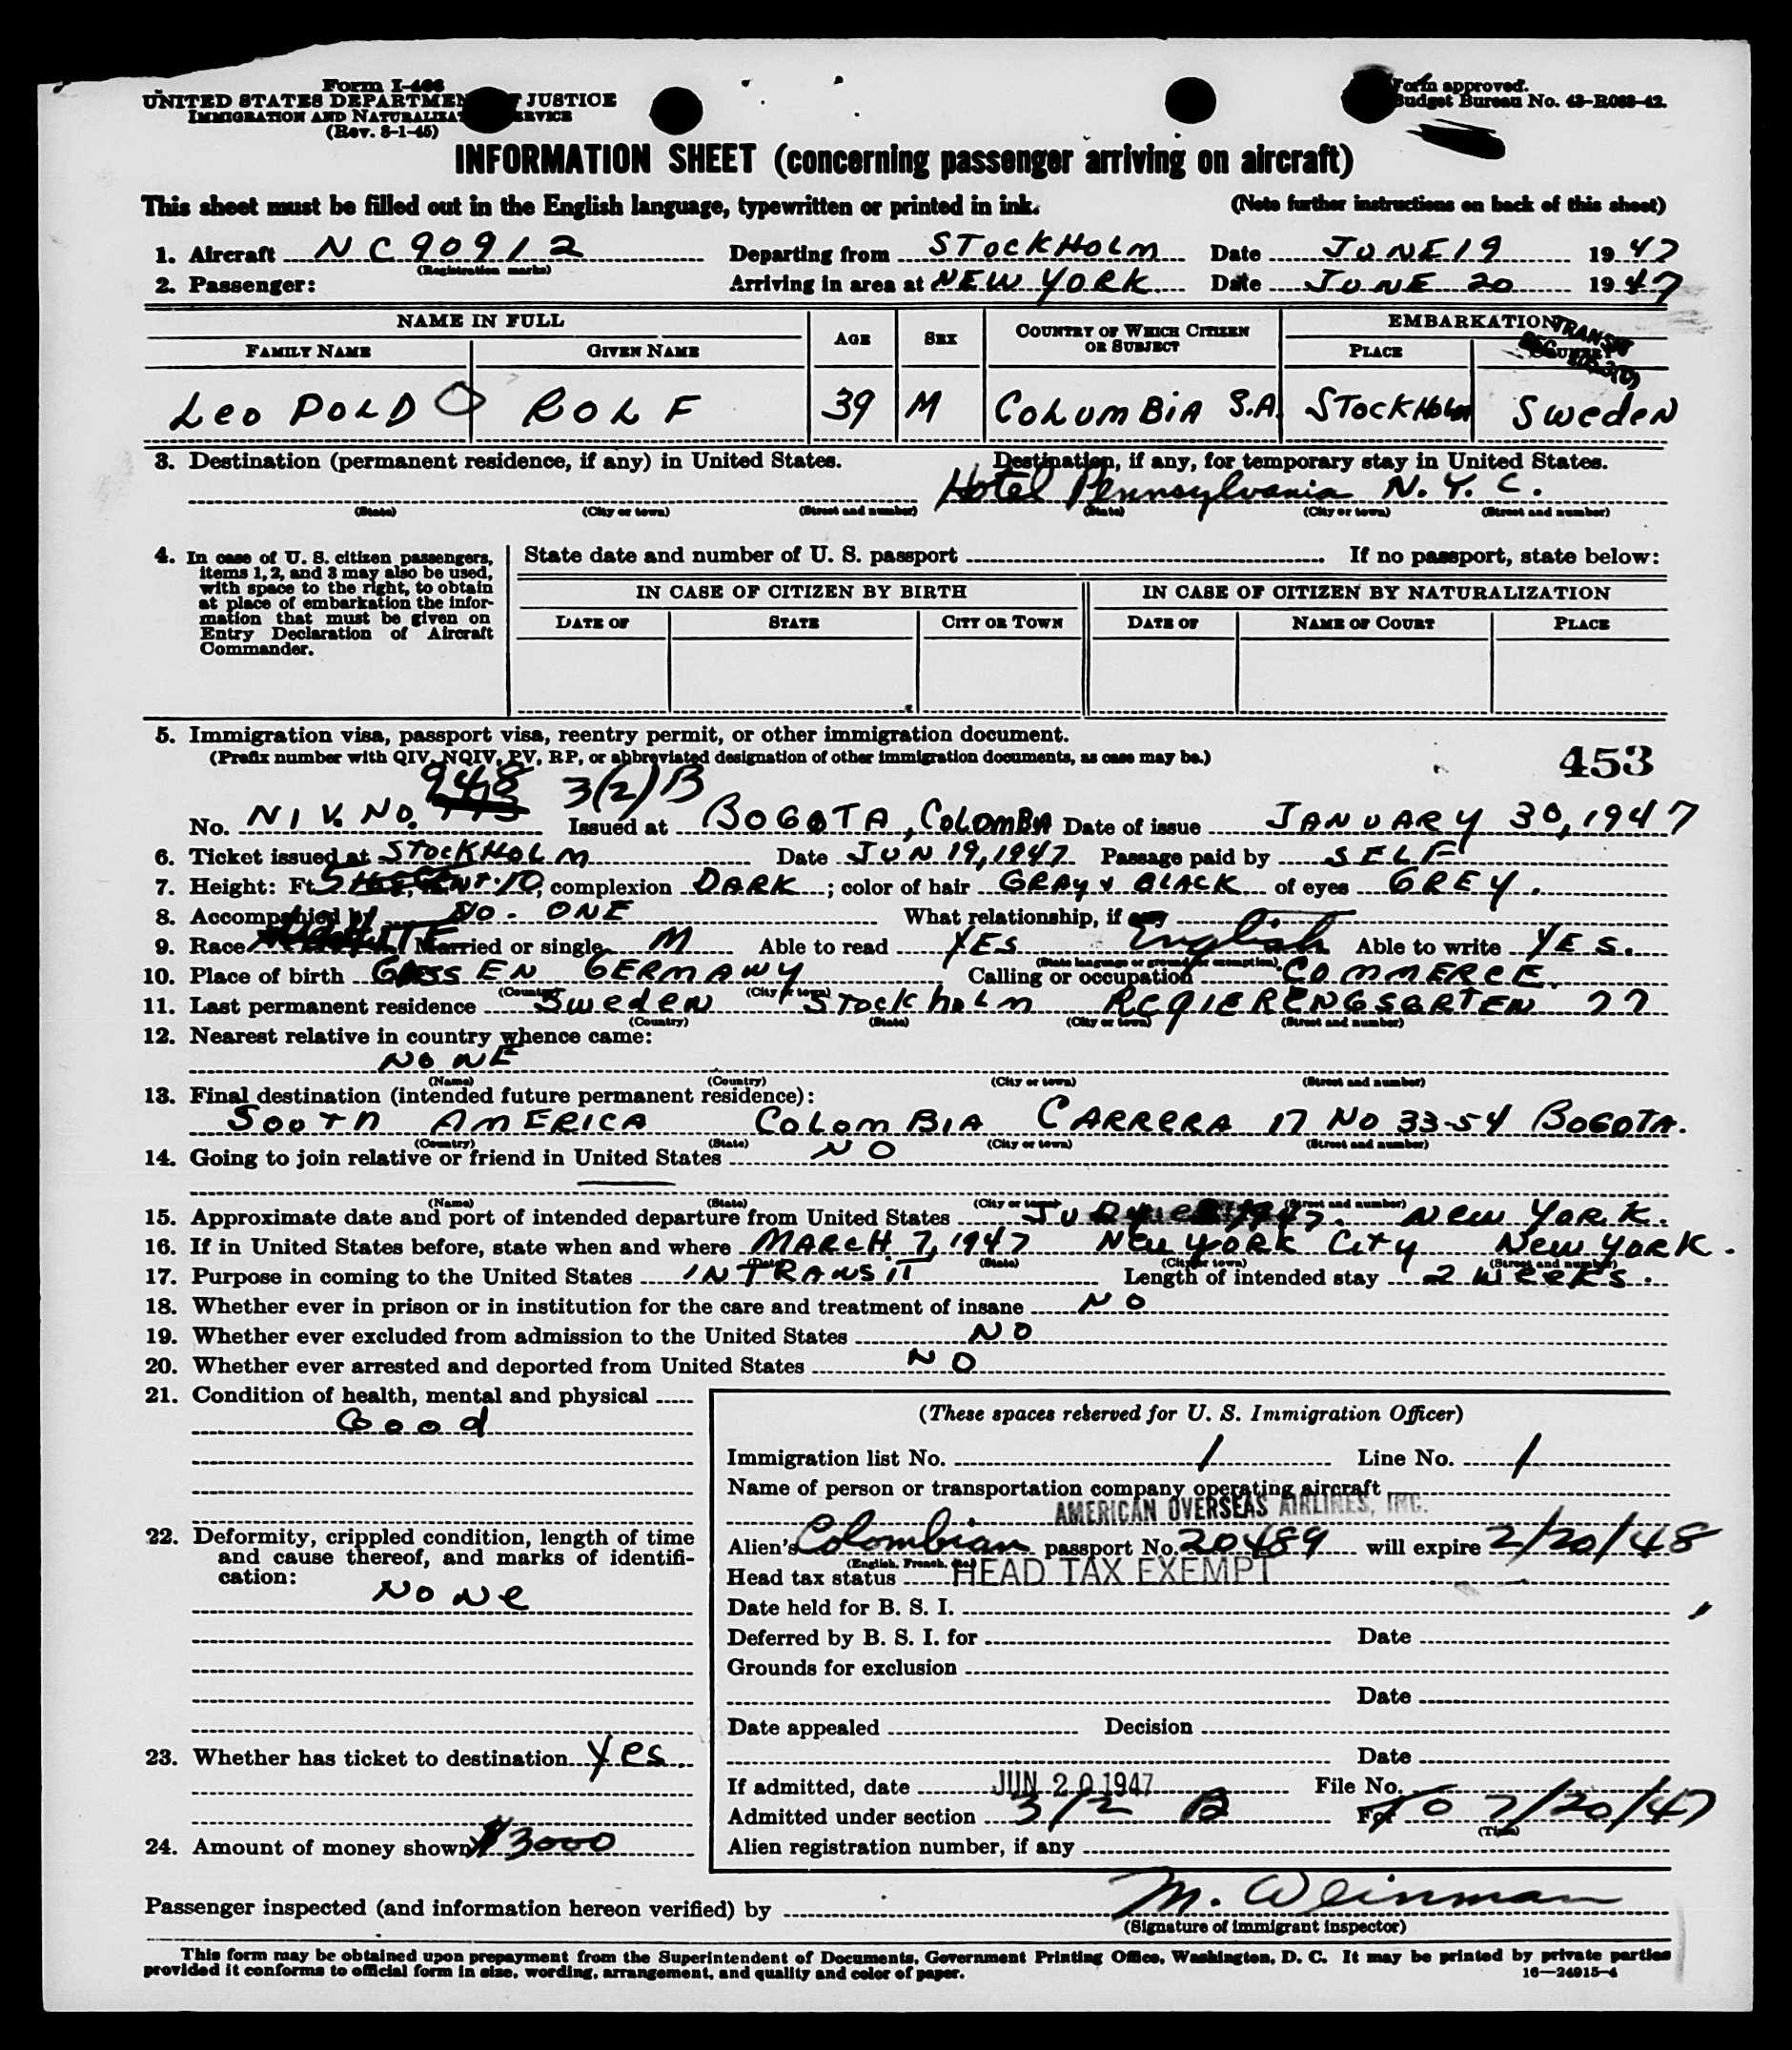 Form I-466
UNITED STATES DEPARTMENT JUSTICE
IMMIGRATION AND NATURALIZAT ERVICE
(Rev. 8-1-45)
Form approved.
Budget Bureau No. 43-R063-42.
INFORMATION SHEET (concerning passenger arriving on aircraft)
This sheet must be filled out in the English language, typewritten or printed in ink. (Note further instructions on back of this sheet)
1. Aircraft NC90912 Departing from STOCKHOLM Date JUNE 19 1947
(Registration marks)
2. Passenger: Arriving in area at NEW YORK Date JUNE 20 1947
NAME IN FULL AGE SEX COUNTRY OF WHICH CITIZEN OR SUBJECT EMBARKATION
FAMILY NAME GIVEN NAME PLACE COUNTRY
TRANSIT
LeoPOLD ROLF 39 M COLUMBIA S.A. STOCKHOLM SwedeN
3. Destination (permanent residence, if any) in United States. Destination, if any, for temporary stay in United States.
Hotel Pennsylvania N.Y.C.
(State) (City or town) (Street and number) (State) (City or town) (Street and number)
4. In case of U. S. citizen passengers, items 1, 2, and 3 may also be used, with space to the right, to obtain at place of embarkation the information that must be given on Entry Declaration of Aircraft Commander.
State date and number of U. S. passport If no passport, state below:
IN CASE OF CITIZEN BY BIRTH IN CASE OF CITIZEN BY NATURALIZATION
DATE OF STATE CITY OR TOWN DATE OF NAME OF COURT PLACE
5. Immigration visa, passport visa, reentry permit, or other immigration document.
(Prefix number with QIV, NQIV, PV, RP, or abbreviated designation of other immigration documents, as case may be.)
453
948 3(2)B
No. NIV. NO. Issued at BOGOTA, COLOMBA Date of issue JANUARY 30, 1947
6. Ticket issued at STOCKHOLM Date JUN 19, 1947 Passage paid by SELF
7. Height: Ft. 5 10, complexion DARK; color of hair GRAY & BLACK of eyes GREY.
8. Accompanied by NO. ONE What relationship, if any
9. Race WHITE Married or single M Able to read YES English Able to write YES.
(State language or ground for exemption)
10. Place of birth GIESSEN GERMANY Calling or occupation COMMERCE.
(Country) (City or town)
11. Last permanent residence Sweden STOCKHOLM REGIERENGSGRTEN 77
(Country) (State) (City or town) (Street and number)
12. Nearest relative in country whence came:
NONE
(Name) (Country) (City or town) (Street and number)
13. Final destination (intended future permanent residence):
SOUTH AMERICA COLOMBIA CARRERA 17 NO 33-54 BOGOTA.
(Country) (State) (City or town) (Street and number)
14. Going to join relative or friend in United States NO
(Name) (State) (City or town) (Street and number)
15. Approximate date and port of intended departure from United States 1947. NEW YORK.
16. If in United States before, state when and where MARCH 7, 1947 NEW YORK CITY NEW YORK.
(Date) (State) (City or town) (Street and number)
17. Purpose in coming to the United States INTRANSIT Length of intended stay 2 WEEKS.
18. Whether ever in prison or in institution for the care and treatment of insane NO
19. Whether ever excluded from admission to the United States NO
20. Whether ever arrested and deported from United States NO
21. Condition of health, mental and physical
Good
22. Deformity, crippled condition, length of time and cause thereof, and marks of identification:
NoNe
23. Whether has ticket to destination Yes
24. Amount of money shown $3000
(These spaces reserved for U. S. Immigration Officer)
Immigration list No. 1 Line No. 1
Name of person or transportation company operating aircraft
AMERICAN OVERSEAS AIRLINES, INC.
Alien's Colombian passport No. 20489 will expire 2/20/48
(English, French, etc.)
Head tax status HEAD TAX EXEMPT
Date held for B. S. I.
Deferred by B. S. I. for Date
Grounds for exclusion
Date
Date appealed Decision
Date
If admitted, date JUN 20 1947 File No.
Admitted under section 3/2 B For TO 7/20/47
(Time)
Alien registration number, if any
Passenger inspected (and information hereon verified) by M. Weinman
(Signature of immigrant inspector)
This form may be obtained upon prepayment from the Superintendent of Documents, Government Printing Office, Washington, D. C. It may be printed by private parties
provided it conforms to official form in size, wording, arrangement, and quality and color of paper. 16—24915-4